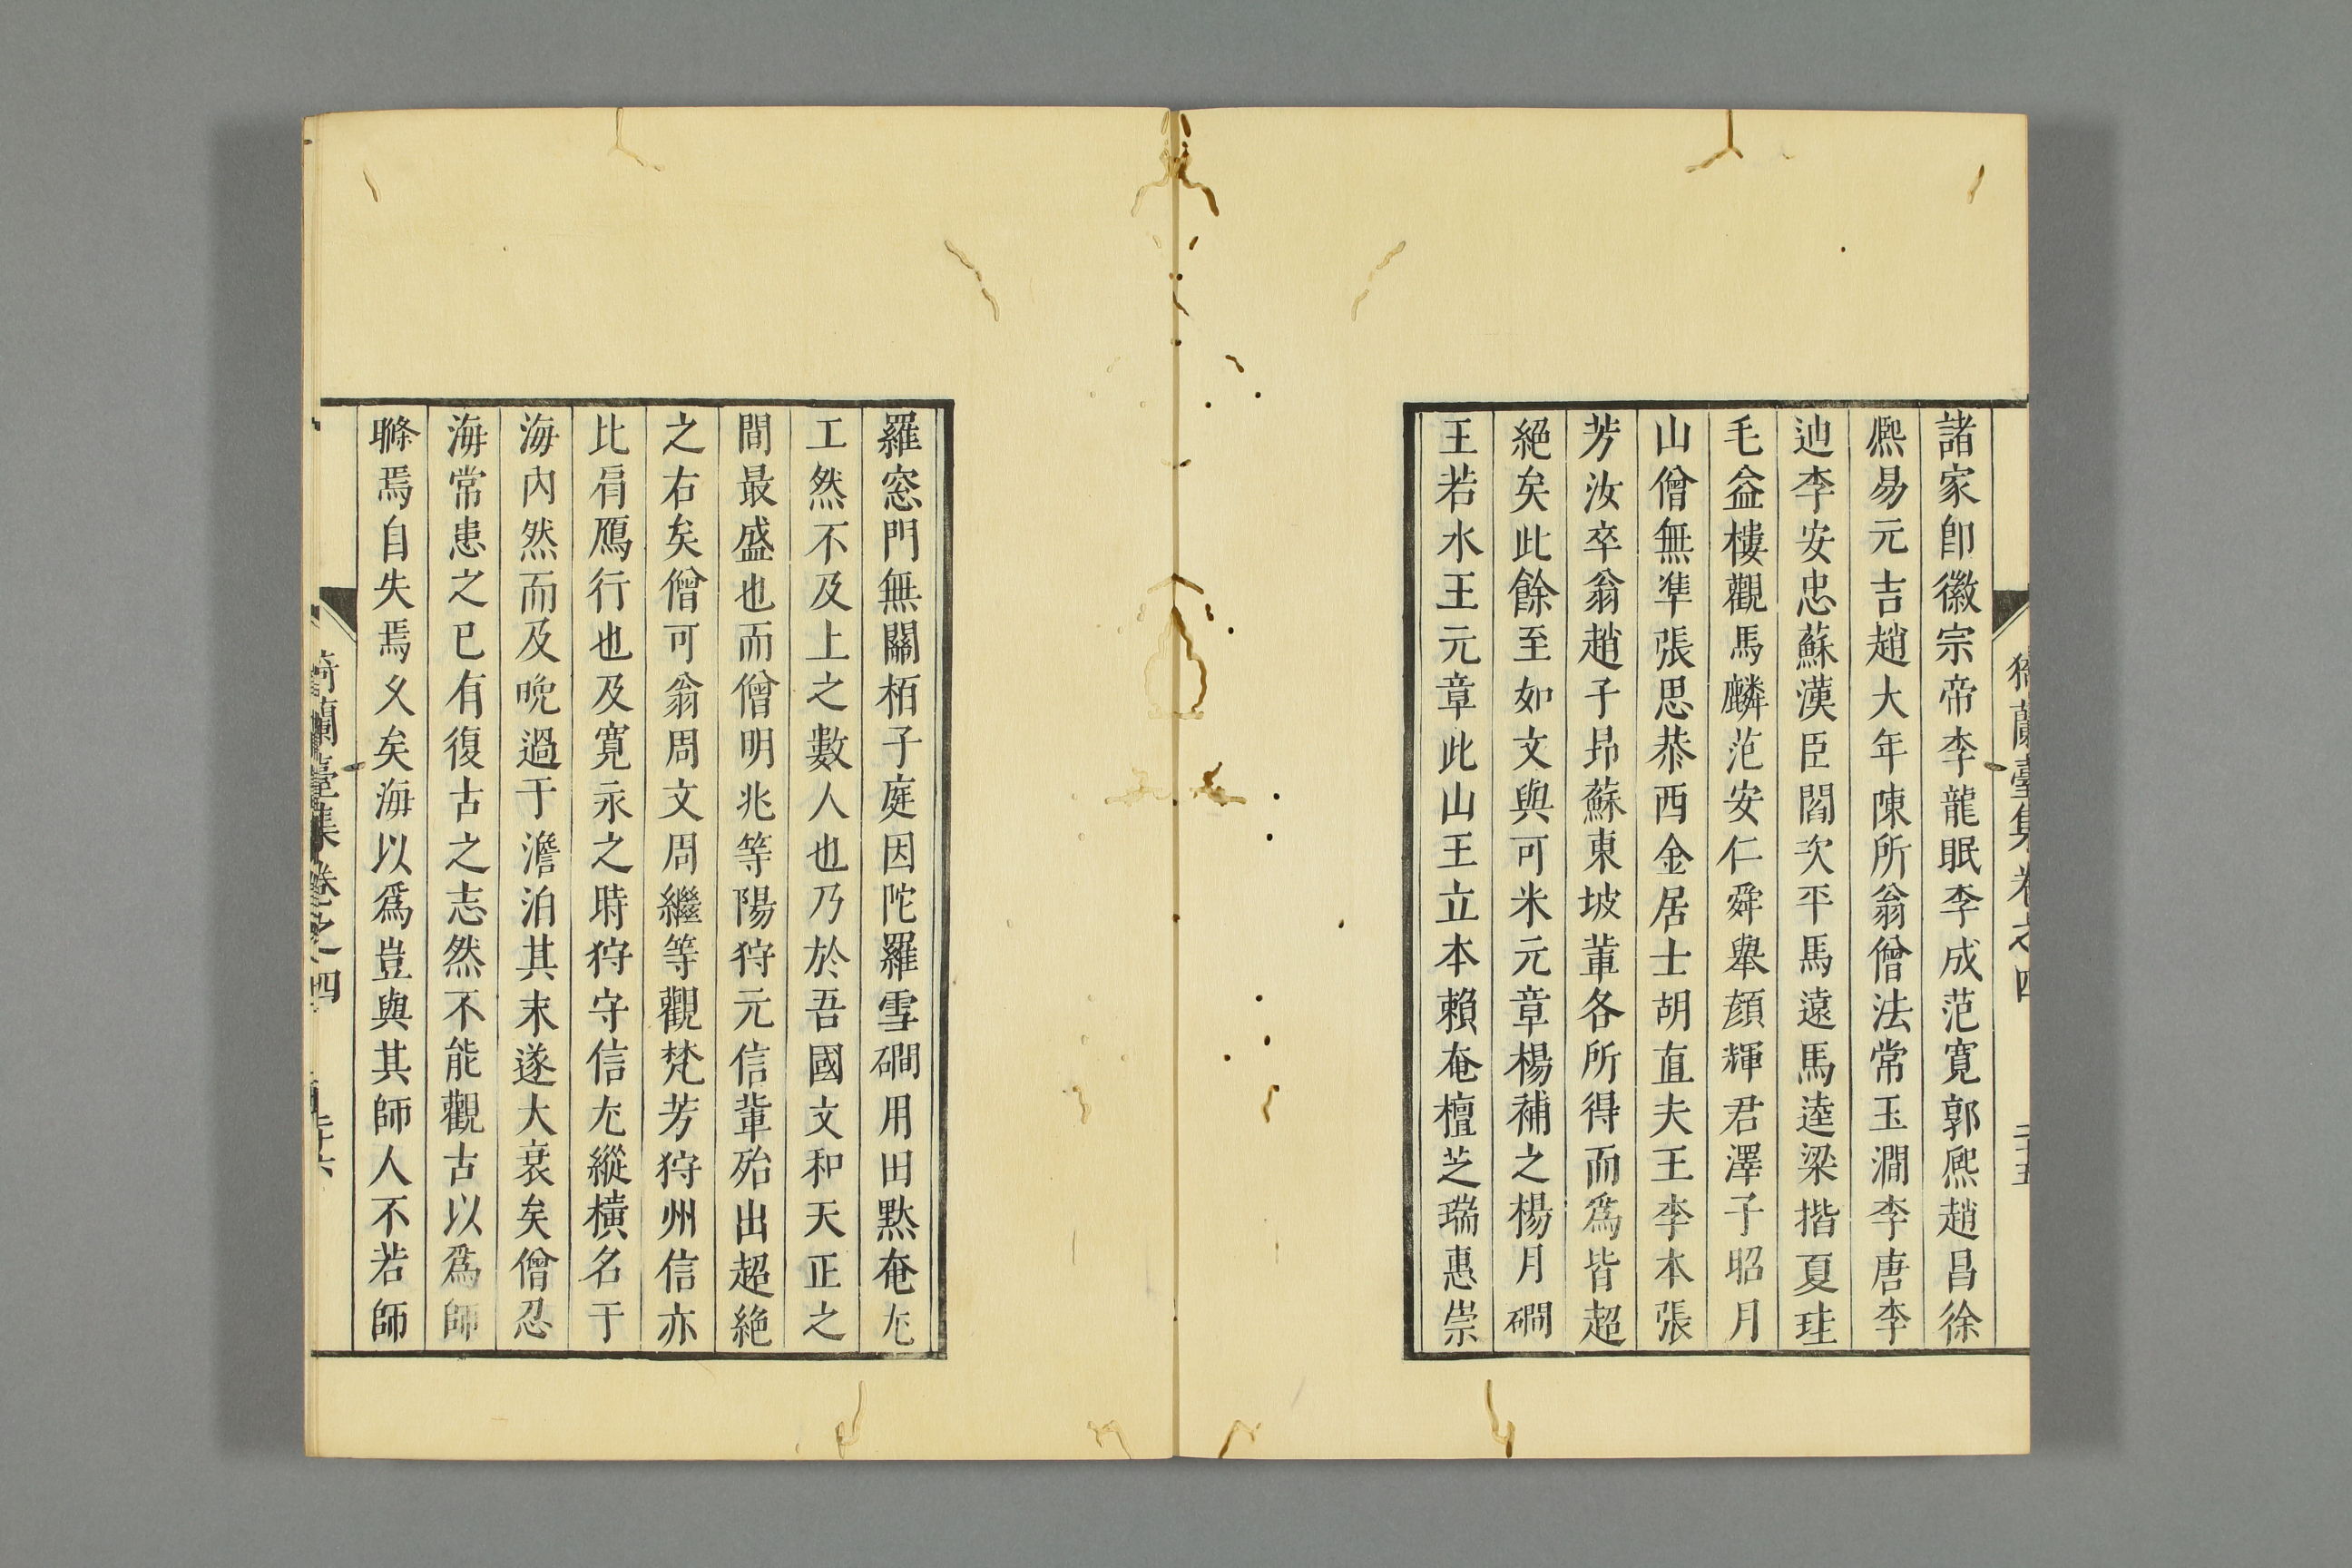 諸家卽徽宗帝李龍眠李成范寛郭熈趙昌徐
熈易元吉趙大年陳所翁僧法常玉澗李唐李
迪李安忠蘇漢臣閻次平馬遠馬逵梁揩夏珪
毛益樓觀馬麟范安仁舜舉顔輝君澤子昭月
山僧無準張思恭西金居士胡直夫王李本張
芳汝卒翁趙子昻蘇東坡軰各所得而爲皆超
絕矣此餘至如文與可米元章楊補之楊月磵
王若水王元章此山王立本賴庵檀芝瑞惠崇
猗蘭臺集卷之四 二十五
羅窓門無關栢子庭因陀羅雪磵用田黙庵尤
工然不及上之數人也乃於吾國文和天正之
間最盛也而僧明兆等陽狩元信軰殆出超絕
之右矣僧可翁周文周繼等觀梵芳狩州信亦
比肩鴈行也及寛永之時狩守信尤縱橫名于
海內然而及晚過于澹泊其末遂大衰矣僧忍
海常患之已有復古之志然不能觀古以爲師
翛焉自失焉久矣海以爲豈與其師人不若師
猗蘭臺集卷之四 二十六